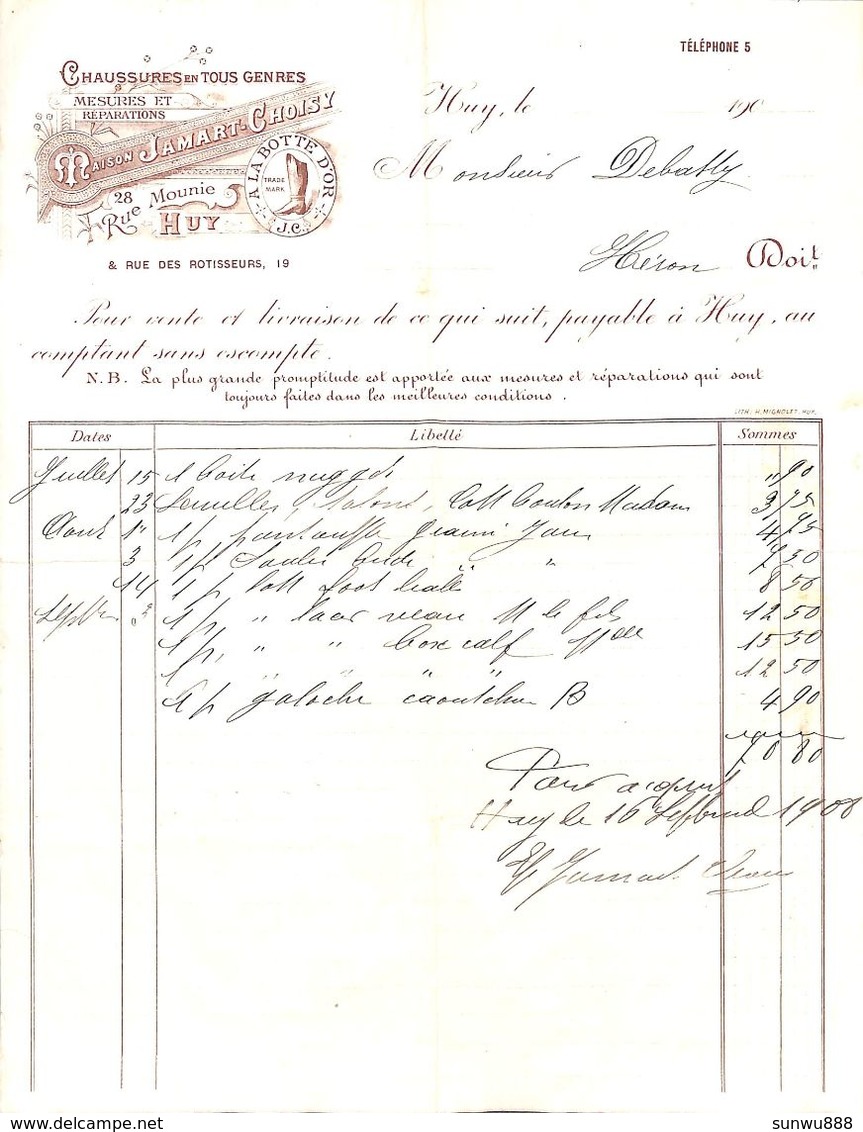 TÉLÉPHONE 5
CHAUSSURES EN TOUS GENRES
MESURES ET
RÉPARATIONS
MAISON JAMART-CHOISY
A LA BOTTE D'OR
TRADE
MARK
J.C.
28
Rue Mounie
HUY
& RUE DES ROTISSEURS, 19
Huy, le 190
Monsieur Debatty
Héron Doit
Pour vente et livraison de ce qui suit, payable à Huy, au
comptant sans escompte.
N.B. La plus grande promptitude est apportée aux mesures et réparations qui sont
toujours faites dans les meilleures conditions.
LITH. H. MIGNOLET. HUY.
Dates Libellé Sommes
Juillet 15 1 boite nugget " 90
23 Semelles, talons, bott bouton Madame 3 75
Aout 1r 1 p pantouffle 4 75
3 1 p " " 7 50
14 1 p bott foot ball 8 50
1 p, " veau M le fils 12 50
1 p, " " box calf Mlle 15 50
1 " " " 12 50
1 p galoche caoutchou B 4 90
70 80
Pour acquit
Huy le 16 1908
Jamart
sunwu888